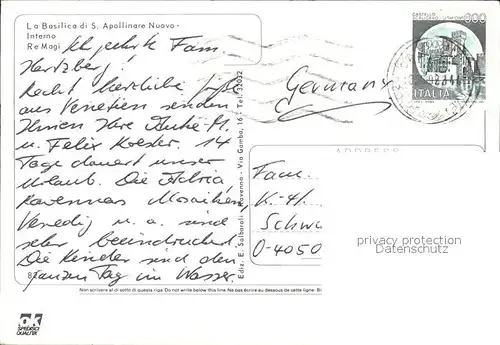 La Basilica di S. Apollinare Nuovo -
Interno
Re Magi
Fam.
Hertzberg!
Recht herzliche Grüße
aus Venetien senden
Ihnen Ihre
u. Felix 14
Tage dauert unser
Urlaub. Die Adria,
Ravennas Mosaiken,
Venedig u. a. sind
sehr beeindruckend.
Die Kinder sind den
ganzen Tag im Wasser.
Ediz. E. Salbaroli - Ravenna - Via Gamba, 16 - Tel. 32032
CASTELLO
300
ITALIA
Germany
ADDRESS
Fam.
K.-H.
Schw
0-4050
privacy protection
Datenschutz
Non scrivere al di sotto di questa riga. Do not write below this line. Ne rien écrire au dessous de cette ligne. Bi
ak
SPEDIC!
QUALITÄT